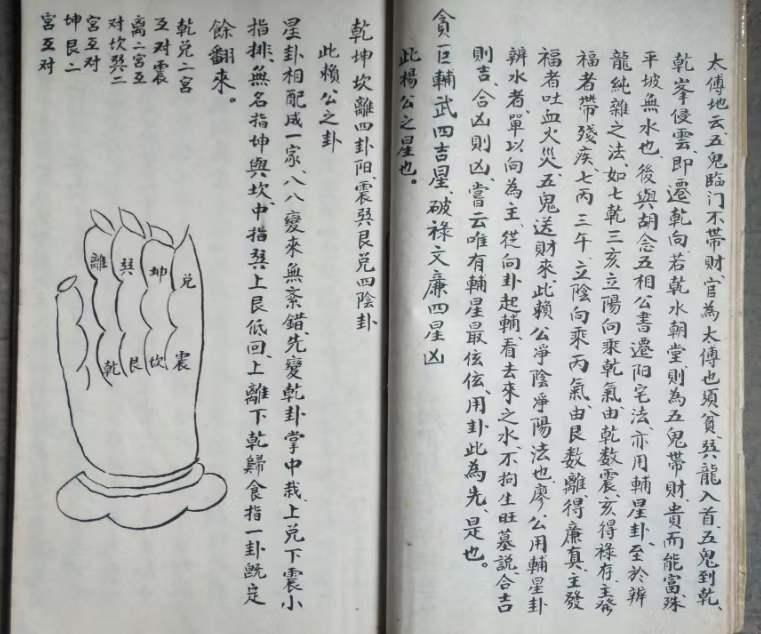 太傅地云、五鬼臨门不帶財、官為太傅也須貧、巽龍入首、五鬼到乾、
乾峯侵雲、即遷乾向、若乾水朝堂、則為五鬼帶財、貴而能富、殊
平坡無水也、後與胡念五相公書遷阳宅法、亦用輔星卦、至於辨
龍純雜之法、如七乾三亥、立陽向乘乾氣、由乾数震、亥得祿存、主發
福者帶殘疾、七丙三午、立陰向乘丙氣、由艮数離、得廉真、主發
福者吐血火災、五鬼送財來、此賴公淨陰淨陽法也、廖公用輔星卦
辨水者、單以向為主、從向卦起輔、看去來之水、不拘生旺墓說、合吉
則吉、合凶則凶、嘗云唯有輔星最伭伭、用卦此為先、是也。
貪巨輔武四吉星、破祿文廉四星凶
此楊公之星也。
乾坤坎離四卦阳、震巽艮兌四陰卦
此賴公之卦
星卦相配成一家、八八變來無紊錯、先變乾卦掌中栽、上兌下震小
指排、無名指坤與坎、中指巽上艮低回、上離下乾歸食指、一卦既定
餘翻來。
乾兌二宮
互对震
離二宮互
对坎巽二
宮互对
坤艮二
宮互对
離
巽
坤
兌
乾
艮
坎
震